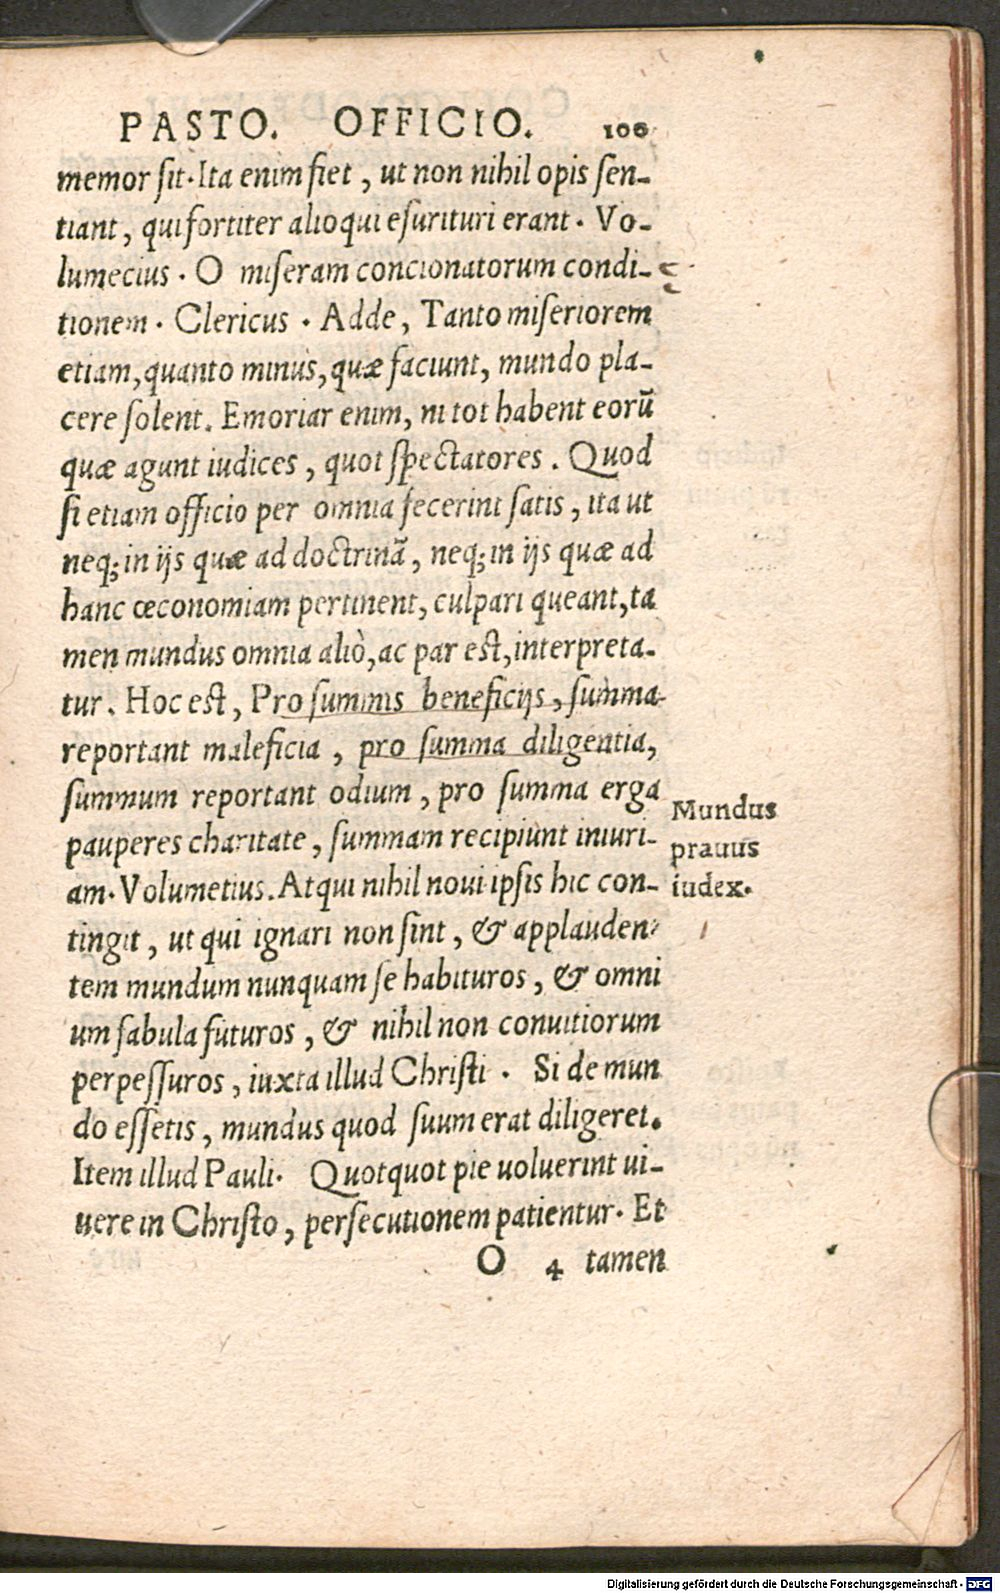 PASTO. OFFICIO. 106
memor sit. Ita enim fiet, ut non nihil opis sen-
tiant, qui fortiter alioqui esurituri erant. Vo-
lumecius. O miseram concionatorum condi-
tionem. Clericus. Adde, Tanto miseriorem
etiam, quanto minus, quæ faciunt, mundo pla-
cere solent. Emoriar enim, ni tot habent eorũ
quæ agunt iudices, quot spectatores. Quod
si etiam officio per omnia fecerint satis, ita ut
neq; in ijs quæ ad doctrinã, neq; in ijs quæ ad
hanc œconomiam pertinent, culpari queant, ta
men mundus omnia aliò, ac par est, interpreta-
tur. Hoc est, Pro summis beneficijs, summa
reportant maleficia, pro summa diligentia,
summum reportant odium, pro summa erga
pauperes charitate, summam recipiunt iniuri-
am. Volumetius. Atqui nihil noui ipsis hic con-
tingit, ut qui ignari non sint, & applauden-
tem mundum nunquam se habituros, & omni
um fabula futuros, & nihil non conuitiorum
perpessuros, iuxta illud Christi. Si de mun
do essetis, mundus quod suum erat diligeret.
Item illud Pauli. Quotquot pie uoluerint ui-
uere in Christo, persecutionem patientur. Et
O 4 tamen
Mundus
prauus
iudex.
Digitalisierung gefördert durch die Deutsche Forschungsgemeinschaft - DFG